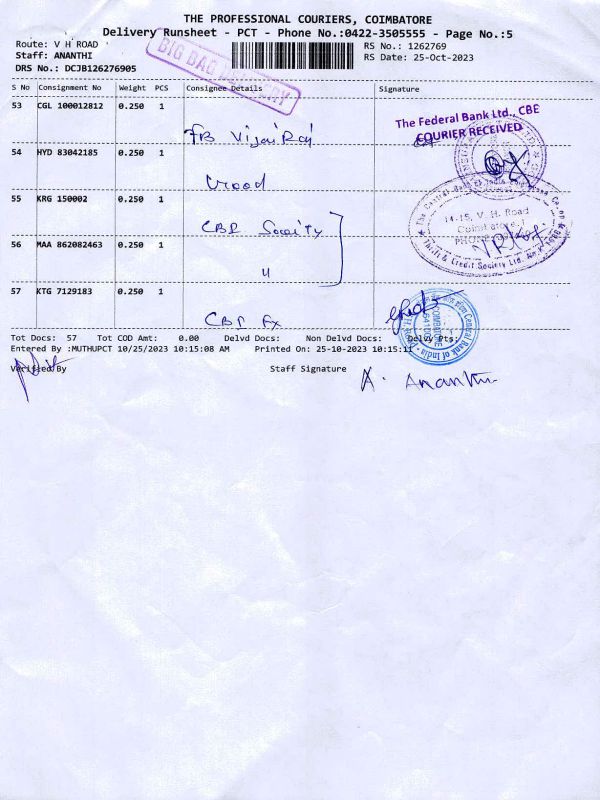 THE PROFESSIONAL COURIERS, COIMBATORE
Delivery Runsheet - PCT - Phone No.:0422-3505555 - Page No.:5
Route: V H ROAD
RS No.: 1262769
Staff: ANANTHI
RS Date: 25-Oct-2023
DRS No.: DCJB126276905
BIG BAG DELIVERY
S No Consignment No Weight PCS Consignee Details Signature
53 CGL 100012812 0.250 1
FB Vijai Raj
The Federal Bank Ltd., CBE
COURIER RECEIVED
54 HYD 83042185 0.250 1
55 KRG 150002 0.250 1
CBI Society
14-15, V. H. Road
Coimbatore-1
56 MAA 862082463 0.250 1
"
Thrift & Credit Society Ltd.
57 KTG 7129183 0.250 1
CBI Fx
Central Bank of India
COIMBATORE
Tot Docs: 57 Tot COD Amt: 0.00 Delvd Docs: Non Delvd Docs: Delvy Pts:
Entered By :MUTHUPCT 10/25/2023 10:15:08 AM Printed On: 25-10-2023 10:15:11
Verified By Staff Signature
A. Ananthi